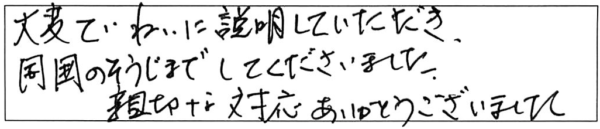 大変ていねいに説明していただき、
周囲のそうじまでしてくださいました。
親切な対応ありがとうございました